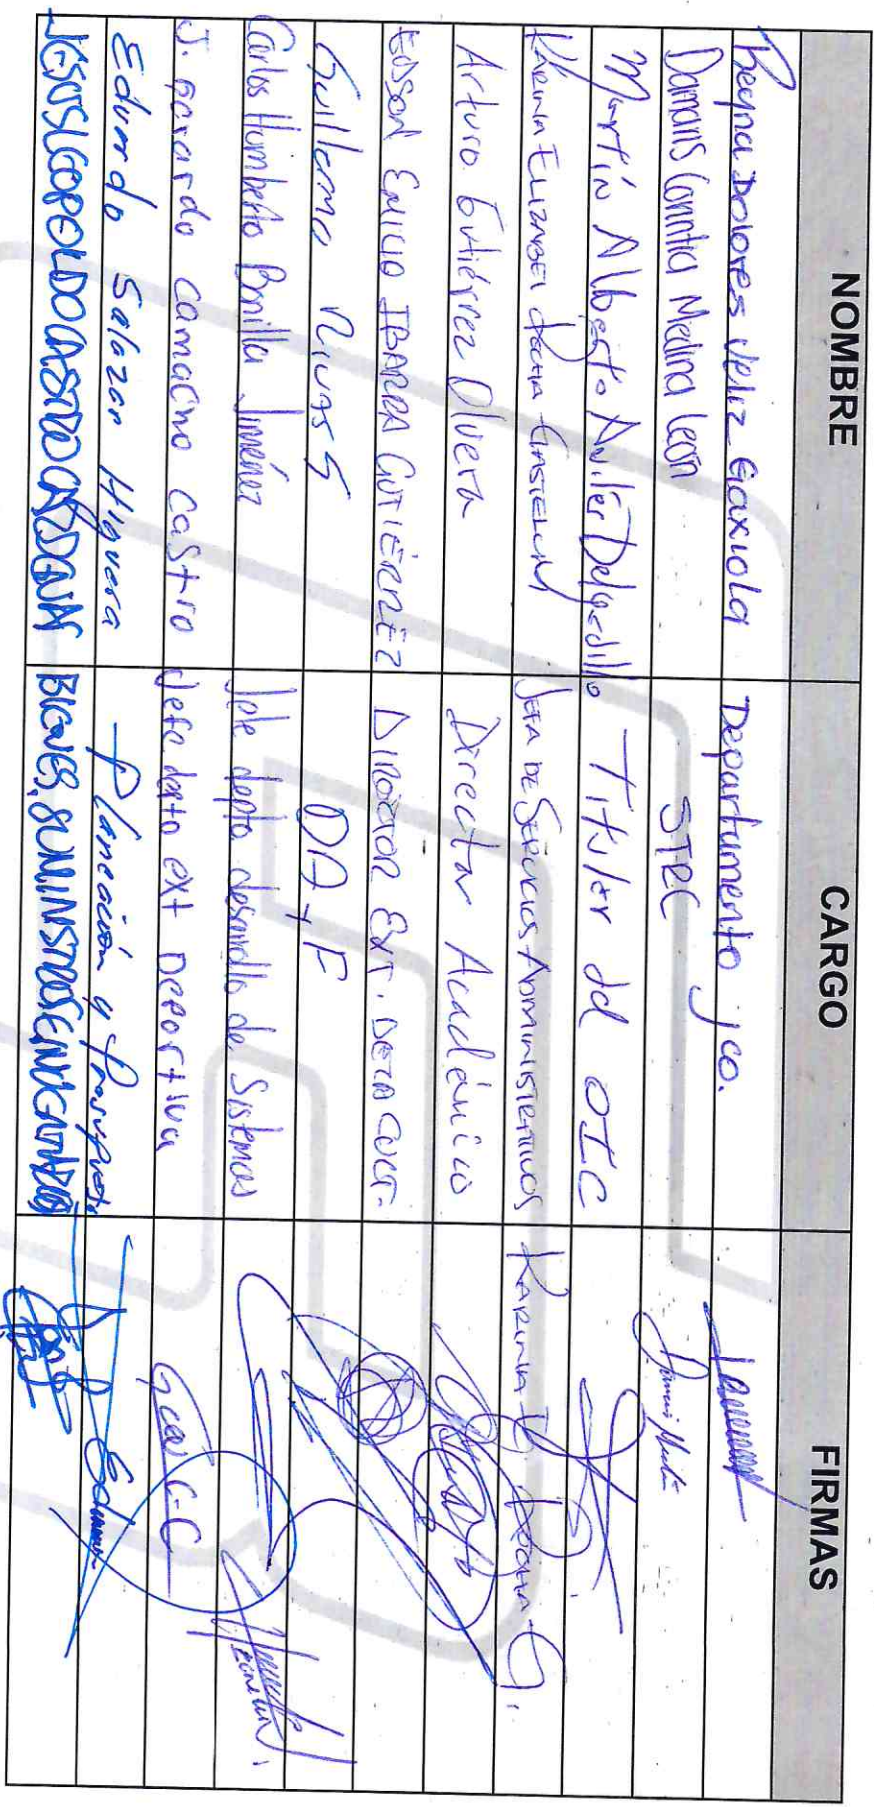 NOMBRE CARGO FIRMAS
Reyna Dolores Veliz Gaxiola Departamento jco.
Damaris Corintia Medina León STRC
Martín Alberto Aviler Delgadillo Titular del OIC
KARINA ELIZABET ROCHA GASTELUM JEFA DE SERVICIOS ADMINISTRATIVOS KARINA E. ROCHA G.
Arturo Gutiérrez Olvera Director Académico
EDSON EMILIO IBARRA GUTIÉRREZ DIRECTOR EXT.
Guillermo RIVAS S DA+F
Carlos Humberto Bonilla Jiménez Jefe depto desarrollo de Sistemas
J. gerardo camacho castro Jefe depto ext Deportiva
Eduardo Salazar Higuera Planeación y Presupuesto
JESUS LEOPOLDO CASTRO CARDENAS BIENES, SUMINISTROS E INVENTARIOS